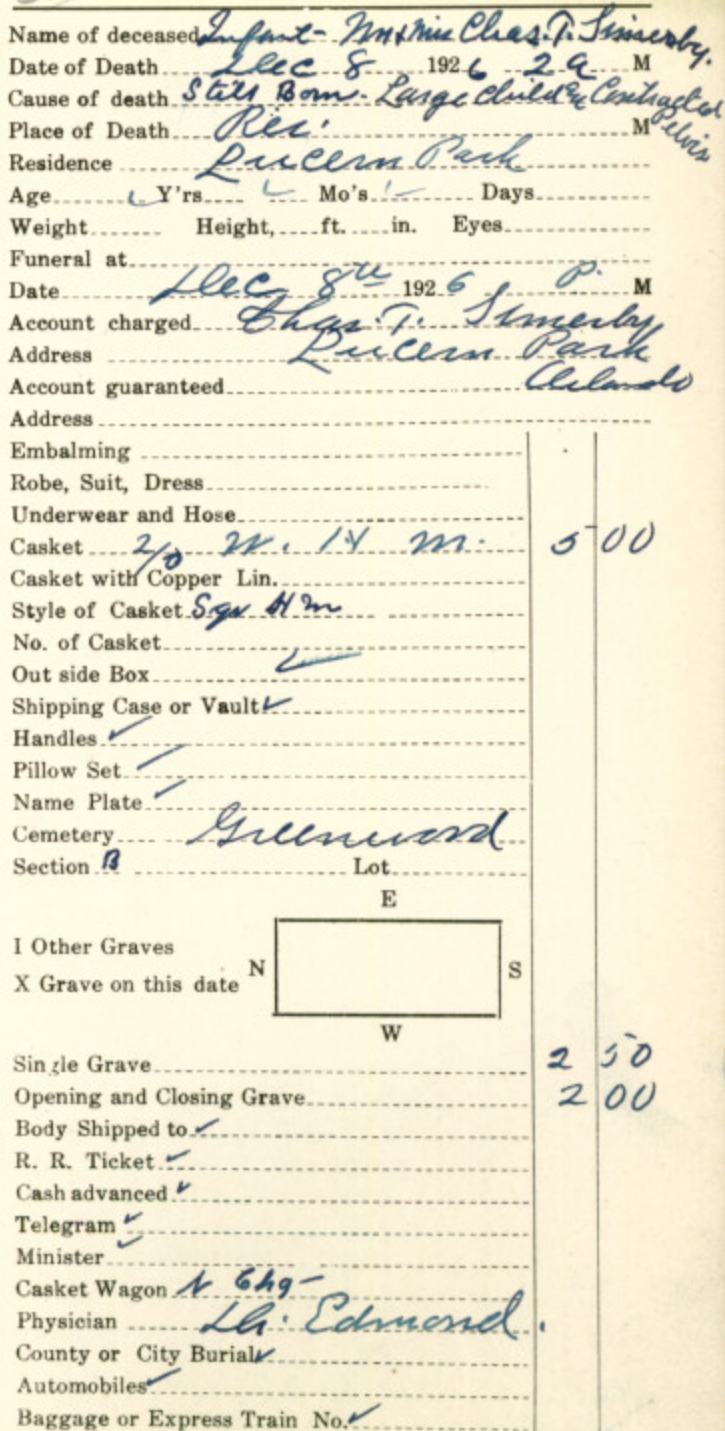 Name of deceased Infant - Mr & Mrs Chas. T. Simerby.
Date of Death Dec 8 1926 2 a M
Cause of death Still Born. Large child & Contracted Pelvis
Place of Death Res. M
Residence Lucern Park
Age Y'rs Mo's Days
Weight Height, ft. in. Eyes
Funeral at
Date Dec 8th 1926 P. M
Account charged Chas. T. Simerby
Address Lucern Park
Account guaranteed Orlando
Address
Embalming
Robe, Suit, Dress
Underwear and Hose
Casket 2/0 W. H M. 5 00
Casket with Copper Lin.
Style of Casket Sqr H m
No. of Casket
Out side Box
Shipping Case or Vault
Handles
Pillow Set
Name Plate
Cemetery Greenwood
Section B Lot
E
I Other Graves
N S
X Grave on this date
W
Single Grave 2 50
Opening and Closing Grave 2 00
Body Shipped to
R. R. Ticket
Cash advanced
Telegram
Minister
Casket Wagon N Chg -
Physician Dr. Edmond.
County or City Burial
Automobiles
Baggage or Express Train No.